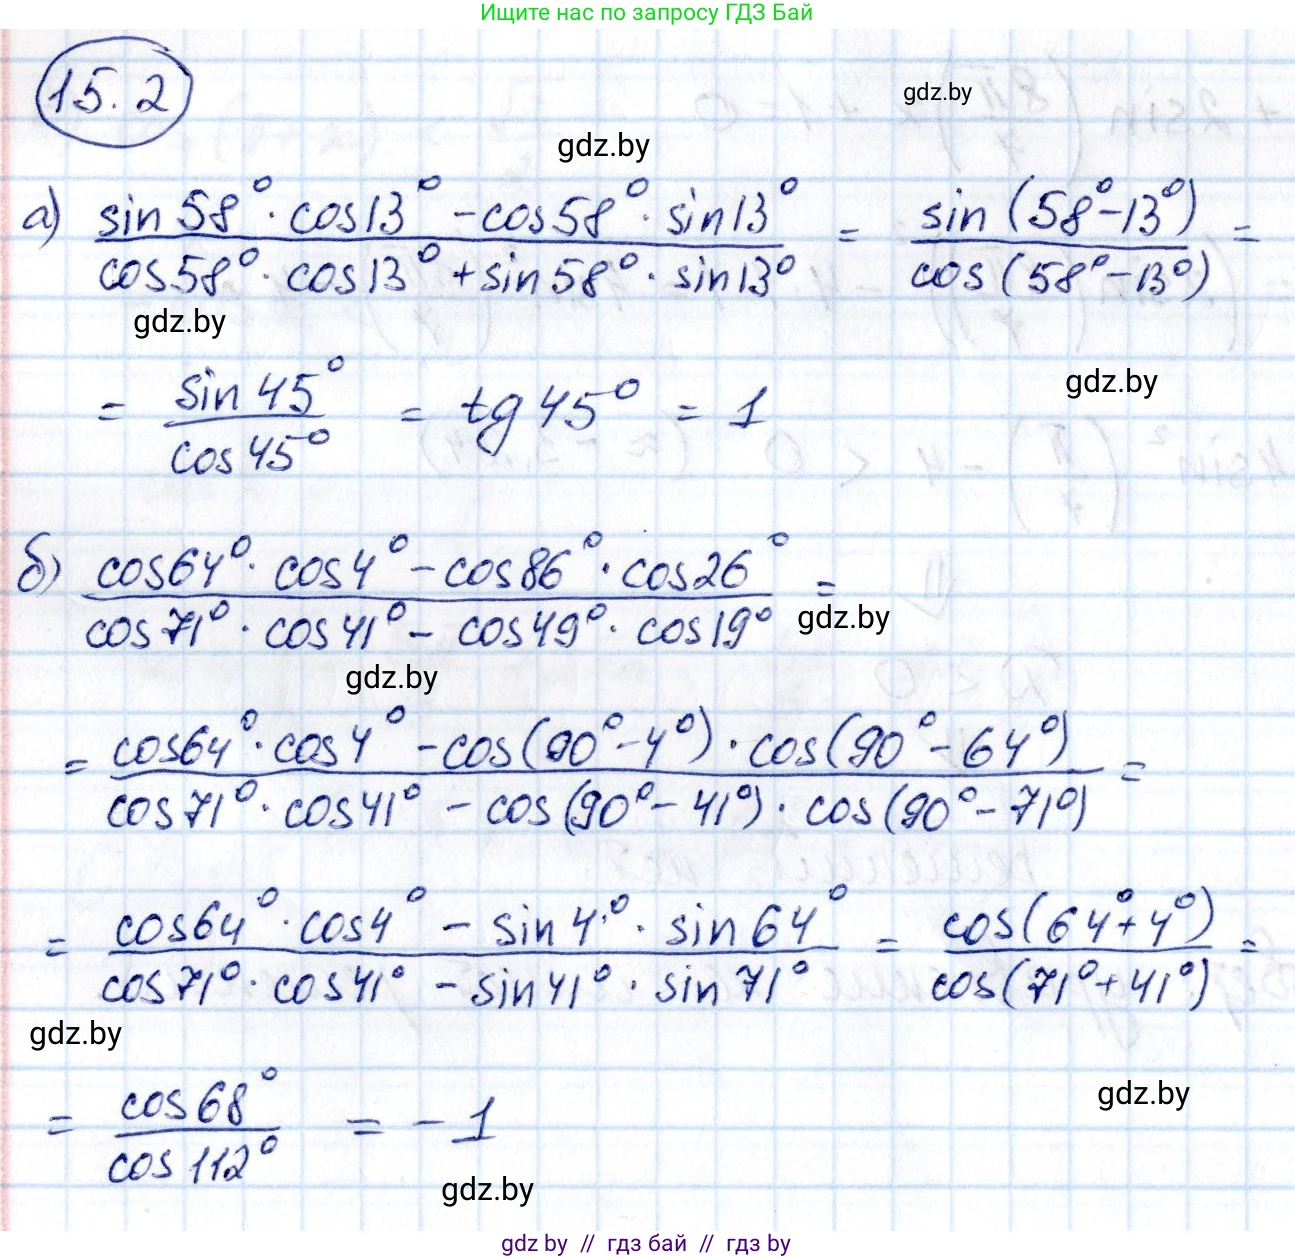 Ищите нас по запросу ГДЗ Бай
15.2
gdz.by
gdz.by
а) (sin 58° · cos 13° - cos 58° · sin 13°) / (cos 58° · cos 13° + sin 58° · sin 13°) = sin (58° - 13°) / cos (58° - 13°) =
gdz.by
gdz.by
= sin 45° / cos 45° = tg 45° = 1
б) (cos 64° · cos 4° - cos 86° · cos 26°) / (cos 71° · cos 41° - cos 49° · cos 19°) =
gdz.by
gdz.by
= (cos 64° · cos 4° - cos (90° - 4°) · cos (90° - 64°)) / (cos 71° · cos 41° - cos (90° - 41°) · cos (90° - 71°)) =
= (cos 64° · cos 4° - sin 4° · sin 64°) / (cos 71° · cos 41° - sin 41° · sin 71°) = cos (64° + 4°) / cos (71° + 41°) =
gdz.by
gdz.by
= cos 68° / cos 112° = - 1
gdz.by
gdz by // гдз бай // гдз by